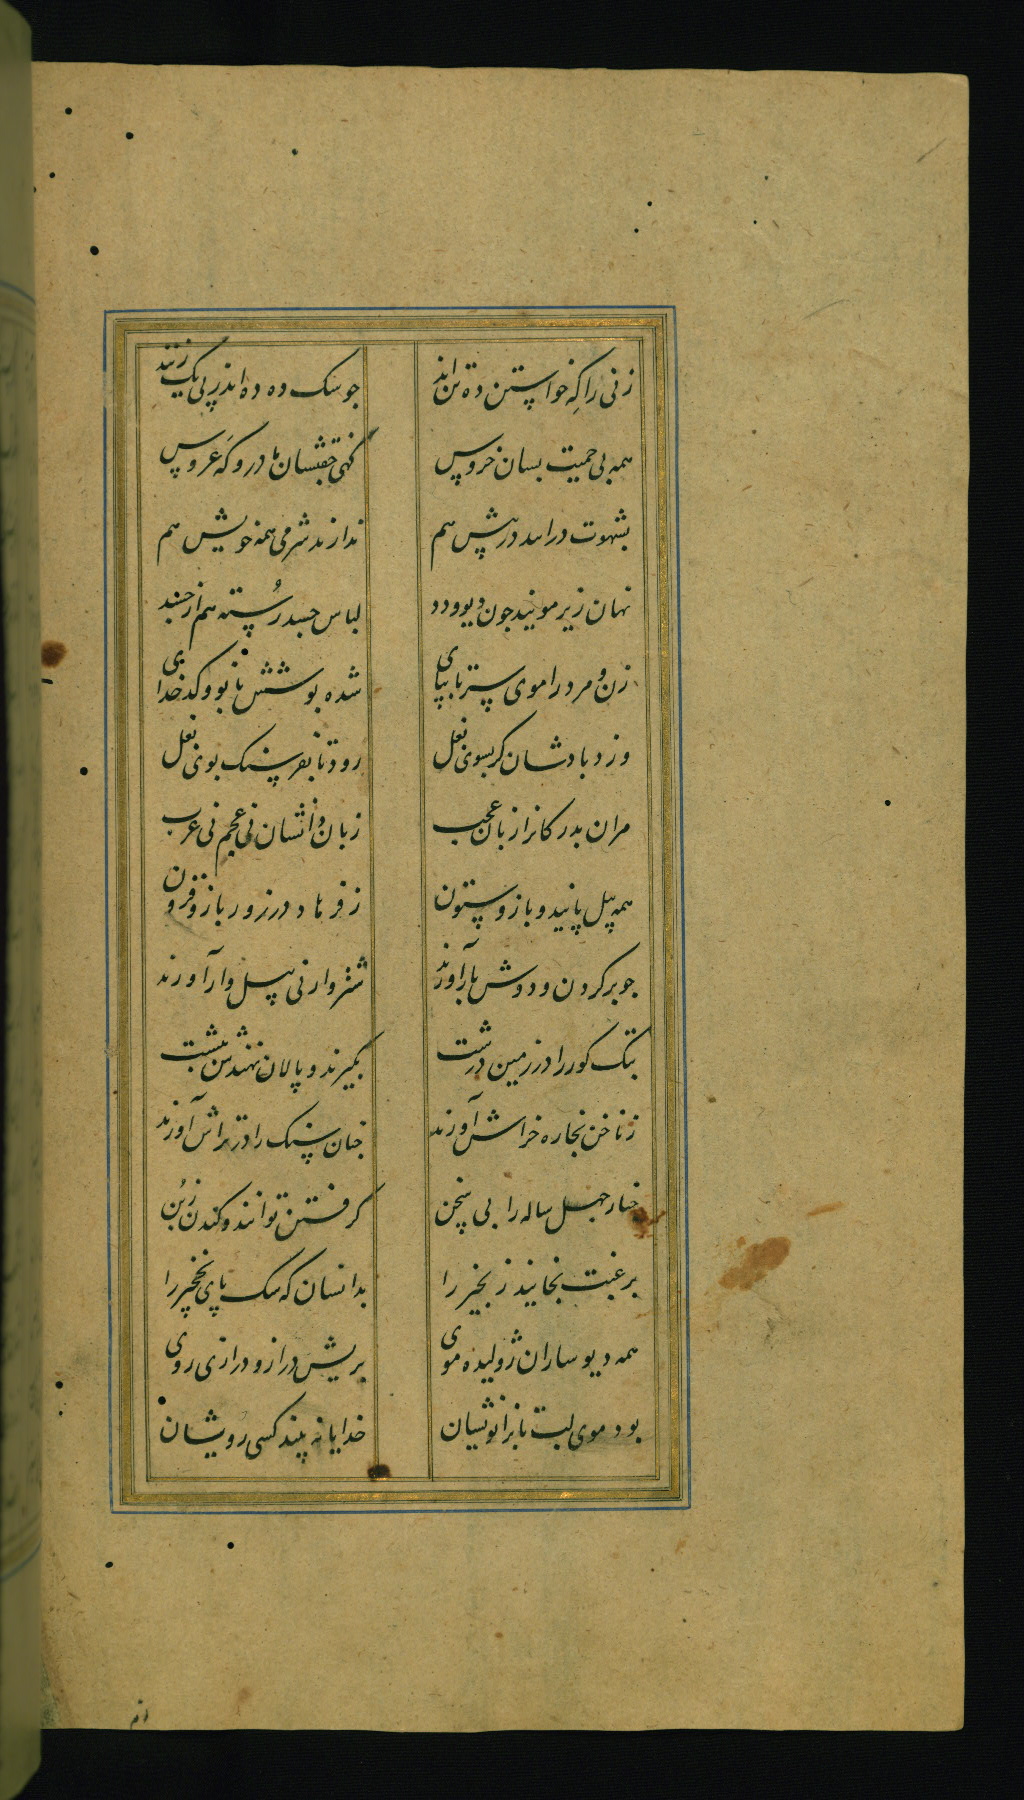 زنی را که خواستن ده تن اند جو سک ده ده اندر پی یک زنند
همه بی حمیت بسان خروس کهی جفتسان مادر و که عروس
بشهوت درایند در پیش هم ندارند شرمی همه خویش هم
نهان زیر مویند جون دیو و دد لباس جسد رسته هم از جسد
زن و مرد را موی سر تا بپای شده پوشش بانو و کدخدای
وزد بادشان کر بسوی نغل رود تا بفرسنک بوی نغل
مران بدرکانرا زبان عجب زبان دانشان نی عجم نی عرب
همه پیل پایند و بازو ستون ز فرهاد در زور بازو فزون
جو بر کردن و دوش بار آورند شتروار نی پیل وار آورند
بتک کور را در زمین درشت بکیرند و پالان نهندش بپشت
ز ناخن بخاره خراش آورند جنان سنک را در تراش آورند
جنار جهل ساله را بی سخن کرفتن توانند و کندن ز بن
برغبت بخایند زنجیر را بدانسان که سک پای نخجیر را
همه دیوساران ژولیده موی بریش دراز و درازی روی
بود موی لبت بازانوشیان خدایا نه بیند کسی رویشان